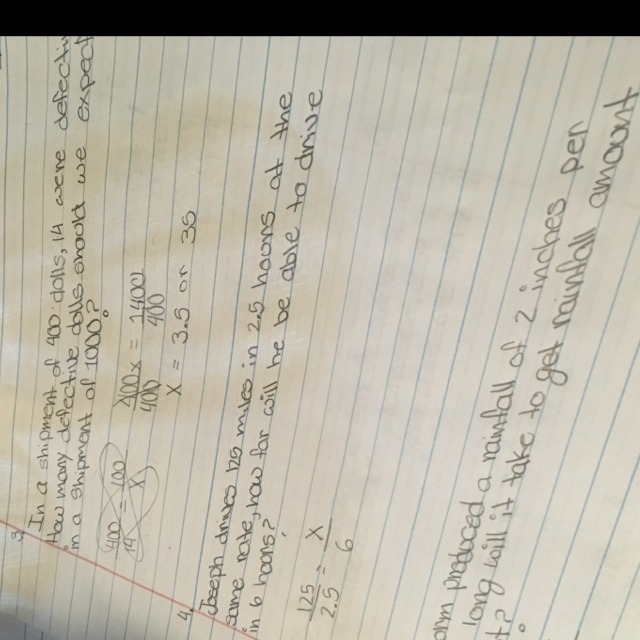 3. In a shipment of 400 dolls, 14 were defectiv
How many defective dolls should we expect
in a shipment of 1000?
400x = 1400
400 400
x = 3.5 or 35
4. Joseph drives 125 miles in 2.5 hours at the
same rate, how far will he be able to drive
in 6 hours?
125 = x
2.5 6
produced a rainfall of 2 inches per
long will it take to get rainfall amount
t?